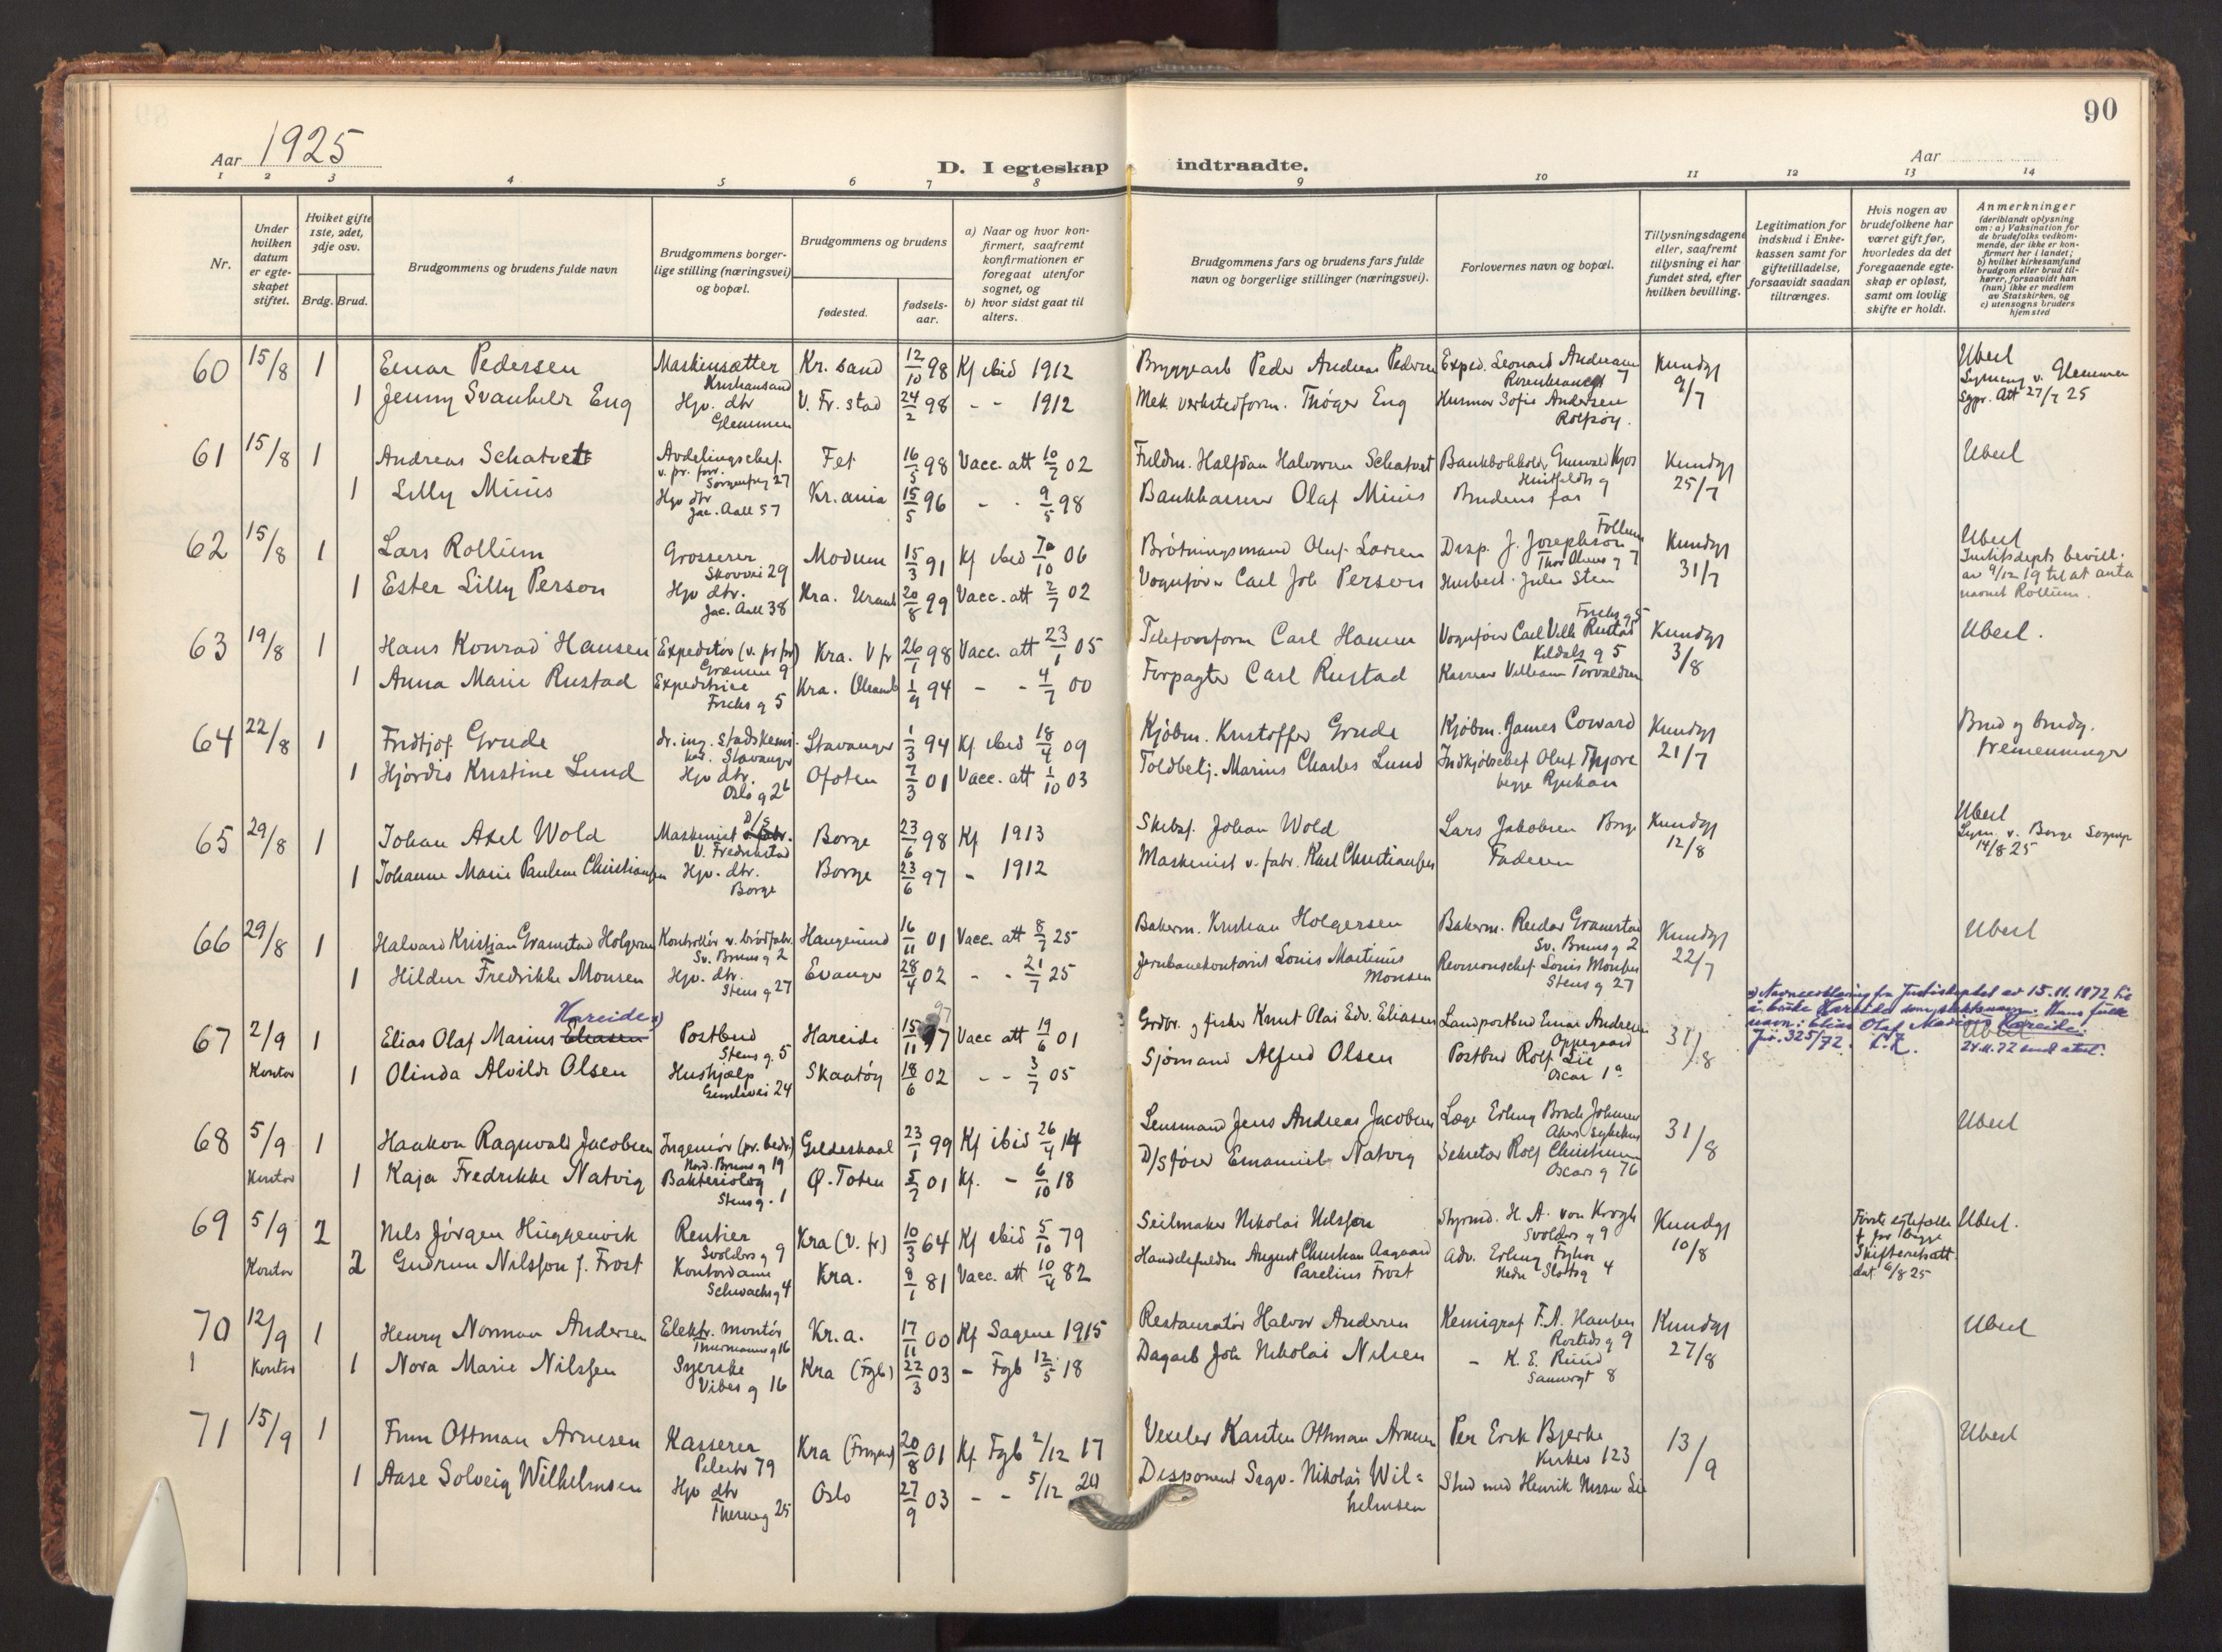 90
Aar 1925
D. I egteskap indtraadte.
Aar
1 2 3 4 5 6 7 8 9 10 11 12 13 14
Nr.
Under hvilken datum er egteskapet stiftet.
Hvilket gifte 1ste, 2det, 3dje osv.
Brdg. Brud.
Brudgommens og brudens fulde navn
Brudgommens borgerlige stilling (næringsvei) og bopæl.
Brudgommens og brudens
fødested.
fødselsaar.
a) Naar og hvor konfirmert, saafremt konfirmationen er foregaat utenfor sognet, og
b) hvor sidst gaat til alters.
Brudgommens fars og brudens fars fulde navn og borgerlige stillinger (næringsvei).
Forlovernes navn og bopæl.
Tillysningsdagene eller, saafremt tillysning ei har fundet sted, efter hvilken bevilling.
Legitimation for indskud i Enkekassen samt for giftetilladelse, forsaavidt saadan tiltrænges.
Hvis nogen av brudefolkene har været gift før, hvorledes da det foregaaende egteskap er opløst, samt om lovlig skifte er holdt.
Anmerkninger
(deriblandt oplysning om: a) Vaksination for de brudefolks vedkommende, der ikke er konfirmert her i landet; b) hvilket kirkesamfund brudgom eller brud tilhører, forsaavidt han (hun) ikke er medlem av Statskirken, og c) utensogns bruders hjemsted
60 15/8 1 Einar Pedersen Maskinsætter Kristiansand Kr. sand 12/10 98 Kf ibid 1912 Bryggearb Peder Andreas Pedersen Exped. Leonard Andreasen 7 Kundgj 9/7 Ubesl
1 Jenny Svanhild Eng Hjv. dtr Glemmen V. Fr. stad 24/2 98 - - 1912 Mek. verkstedform. Thøger Eng Husmor Sofie Andersen Rolfsøy. Glemmen Sgpr. Att 27/7 25
61 15/8 1 Andreas Schatvet Avdelingschef v. pr. forr. Sorgenfrig 27 Fet 16/5 98 Vacc. att 10/7 02 Fuldm. Halfdan Halvorsen Schatvet Bankbokholder Gunvald Huitfeldts g Kundgj 25/7 Ubesl
1 Lilly Minis Hjv dtr Jac. Aall 57 Kr. ania 15/5 96 - - 9/5 98 Bankkasserer Olaf Minis Brudens far
62 15/8 1 Lars Rollum Grosserer Skovvei 29 Modum 15/3 91 Kf ibid 06 Brøtningsmand Oluf Larsen Disp. J. Josephson Thor Olsens g 7 Kundgj 31/7 Ubesl
1 Ester Lilly Person Hjv dtr. Jac. Aall 38 Kra. Uranb 20/8 99 Vacc. att 2/7 02 Vognfører Carl Joh Person Husbest. Julie Sten Justisdepts bevill. av 9/12 19 til at anta navnet Rollum.
63 19/8 1 Hans Konrad Hansen Expeditør (v. pr fr) Grønnen 9 Kra. V fr 26/1 98 Vacc. att 23/1 05 Telefonform Carl Hansen Vognfører Carl Vilh Rustad Frichs g 5 Kundgj 3/8 Ubesl.
1 Anna Marie Rustad Expeditrice Frichs g 5 Kra. 1/9 94 - - 4/7 00 Forpagter Carl Rustad Kasserer Villiam Torvaldsen
64 22/8 1 Fridtjof Grude dr. ing. Stadskemiker. Stavanger Stavanger 1/3 94 Kf ibid 18/4 09 Kjøbm. Kristoffer Grude Kjøbm. James Coward Kundgj 21/7 Brud og brudg. tremenninger
1 Hjørdis Kristine Lund Hjv dtr. Oslo g 26 Ofoten 7/3 01 Vacc. att 1/10 03 Toldbetj. Marius Charles Lund Indkjøbschef Oluf Thjore begge Rjukan
65 29/8 1 Johan Axel Wold Maskinist D/S V. Fredrikstad Borge 23/6 98 Kf 1913 Skibsf. Johan Wold Lars Jakobsen Borge Kundgj 12/8 Ubesl
1 Johanne Marie Pauline Christiansen Hjv. dtr. Borge Borge 23/6 97 - 1912 Maskinist v. fabr. Karl Christiansen Faderen Lysn. v. Borge Sognepr 14/8 25
66 29/8 1 Halvard Kristjan Gramstad Holgersen Kontrollør v. brødfabr. Sv. Bruns g 2 Haugesund 16/11 01 Vacc. att 8/7 25 Bakerm. Kristian Holgersen Bakerm. Reidar Gramstad Sv. Bruns g 2 Kundgj 22/7 Ubesl
1 Hildur Fredrikke Monsen Hjv. dtr. Stens g 27 Evanger 28/4 02 - - 21/7 25 Jernbanekontorist Louis Martinius Monsen Revisionschef Louis Monsen Stens g 27
67 2/9 1 Elias Olaf Marius Eliasen Hareide x) Postbud Stens g. 5 Hareide 15/11 97 Vacc att 19/6 01 Grdbr. og fisker Knut Olai Edv. Eliasen Landpostbud Einar Andresen Oppegaard 31/8
x) Navneerklæring fra Justisdeptet av 15.11.1972 til å bruke Hareide som slektsnavn. Hans fulle navn: Elias Olaf Marius Hareide. Jnr. 325/72. 24.11.72 sendt attest.
Kontor 1 Olinda Alvilde Olsen Hushjælp Gimlevei 24 Skaatøy 18/6 02 - - 3/7 05 Sjømand Alfred Olsen Postbud Rolf Lie Oscar 1a
68 5/9 1 Haakon Ragnvald Jacobsen Ingeniør (pr. bedr.) Nord. Bruns g 19 Gildeskaal 23/1 99 Kf ibid 26/4 14 Lensmand Jens Andreas Jacobsen Læge Erling Brode Johnsen Aker sykehus 31/8 Ubesl
Kontor 1 Kaja Fredrikke Natvig Bakteriolog Stens g. 1 Ø. Toten 5/7 01 Kf. - 6/10 18 D/S fører Emanuel Natvig Sekretær Rolf Christensen Oscars g 76
69 5/9 2 Nils Jørgen Huggenvik Rentier Svolders g 9 Kra (V. fr) 10/3 64 Kf ibid 5/10 79 Seilmaker Nikolai Nilssen Styrmd. H. A. von Krogh Svolders g 9 Kundgj 10/8 Første egtefælle † for begge Skifterettsatt. dat. 6/8 25 Ubesl.
Kontor 2 Gudrun Nilsson f. Frost Kontordame Schwachs g 4 Kra. 8/1 81 Vacc. att 10/4 82 Handelsfuldm August Christian Aagaard Parelius Frost Adv. Erling Nedre Slotsg 4
70 12/9 1 Henry Norman Andersen Elektr. montør Thurmanns g 16 Kr.a. 17/11 00 Kf Sagene 1915 Restauratør Halvor Andersen Kemigraf F. A. Hansen Rosteds g 9 Kundgj 27/8 Ubesl
1 Kontor 1 Nora Marie Nilssen Syerske Vibes g 16 Kra (Fgb) 22/3 03 - Fgb 12/5 18 Dagarb Joh Nikolai Nilsen - K. E. Ruud Sannergt 8
71 15/9 1 Finn Ottman Arnesen Kasserer Pilestr 79 Kra 20/8 01 Kf. Fgb 2/12 17 Vexeler Karsten Othman Arnesen Per Erik Bjerke Kirkev 123 13/9 Ubesl
1 Aase Solveig Wilhelmsen Hjv dtr Thereses g 25 Oslo 27/9 03 - - 5/12 20 Disponent Nikolai Wilhelmsen Stud med Henrik Nissen Lie